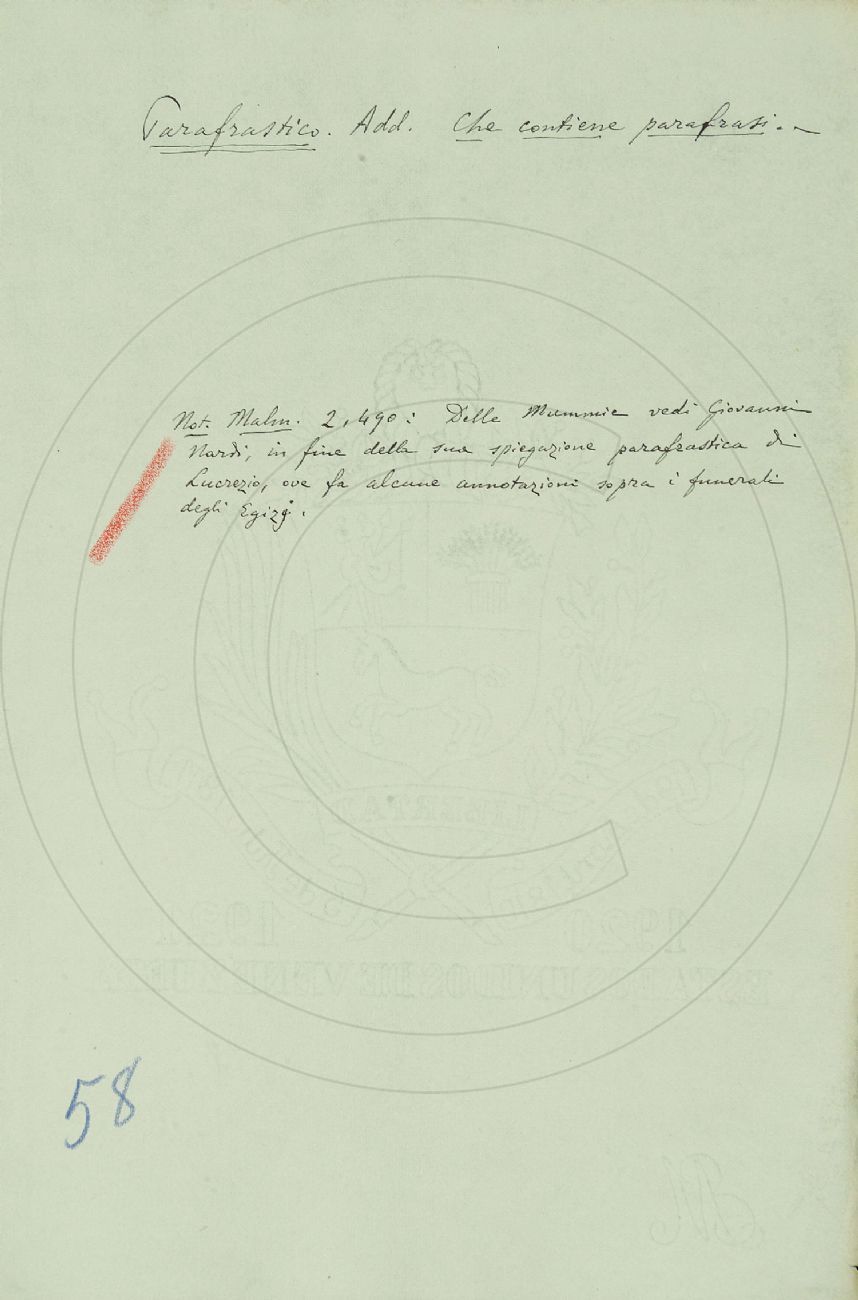 Parafrastico. Add. Che contiene parafrasi. -
Not. Malm. 2, 490: Delle Mummie vedi Giovanni
Nardi, in fine della sua spiegazione parafrastica di
Lucrezio, ove fa alcune annotazioni sopra i funerali
degli Egizj.
LIBERTAD
1920 1921
ESTADOS UNIDOS DE VENEZUELA
58